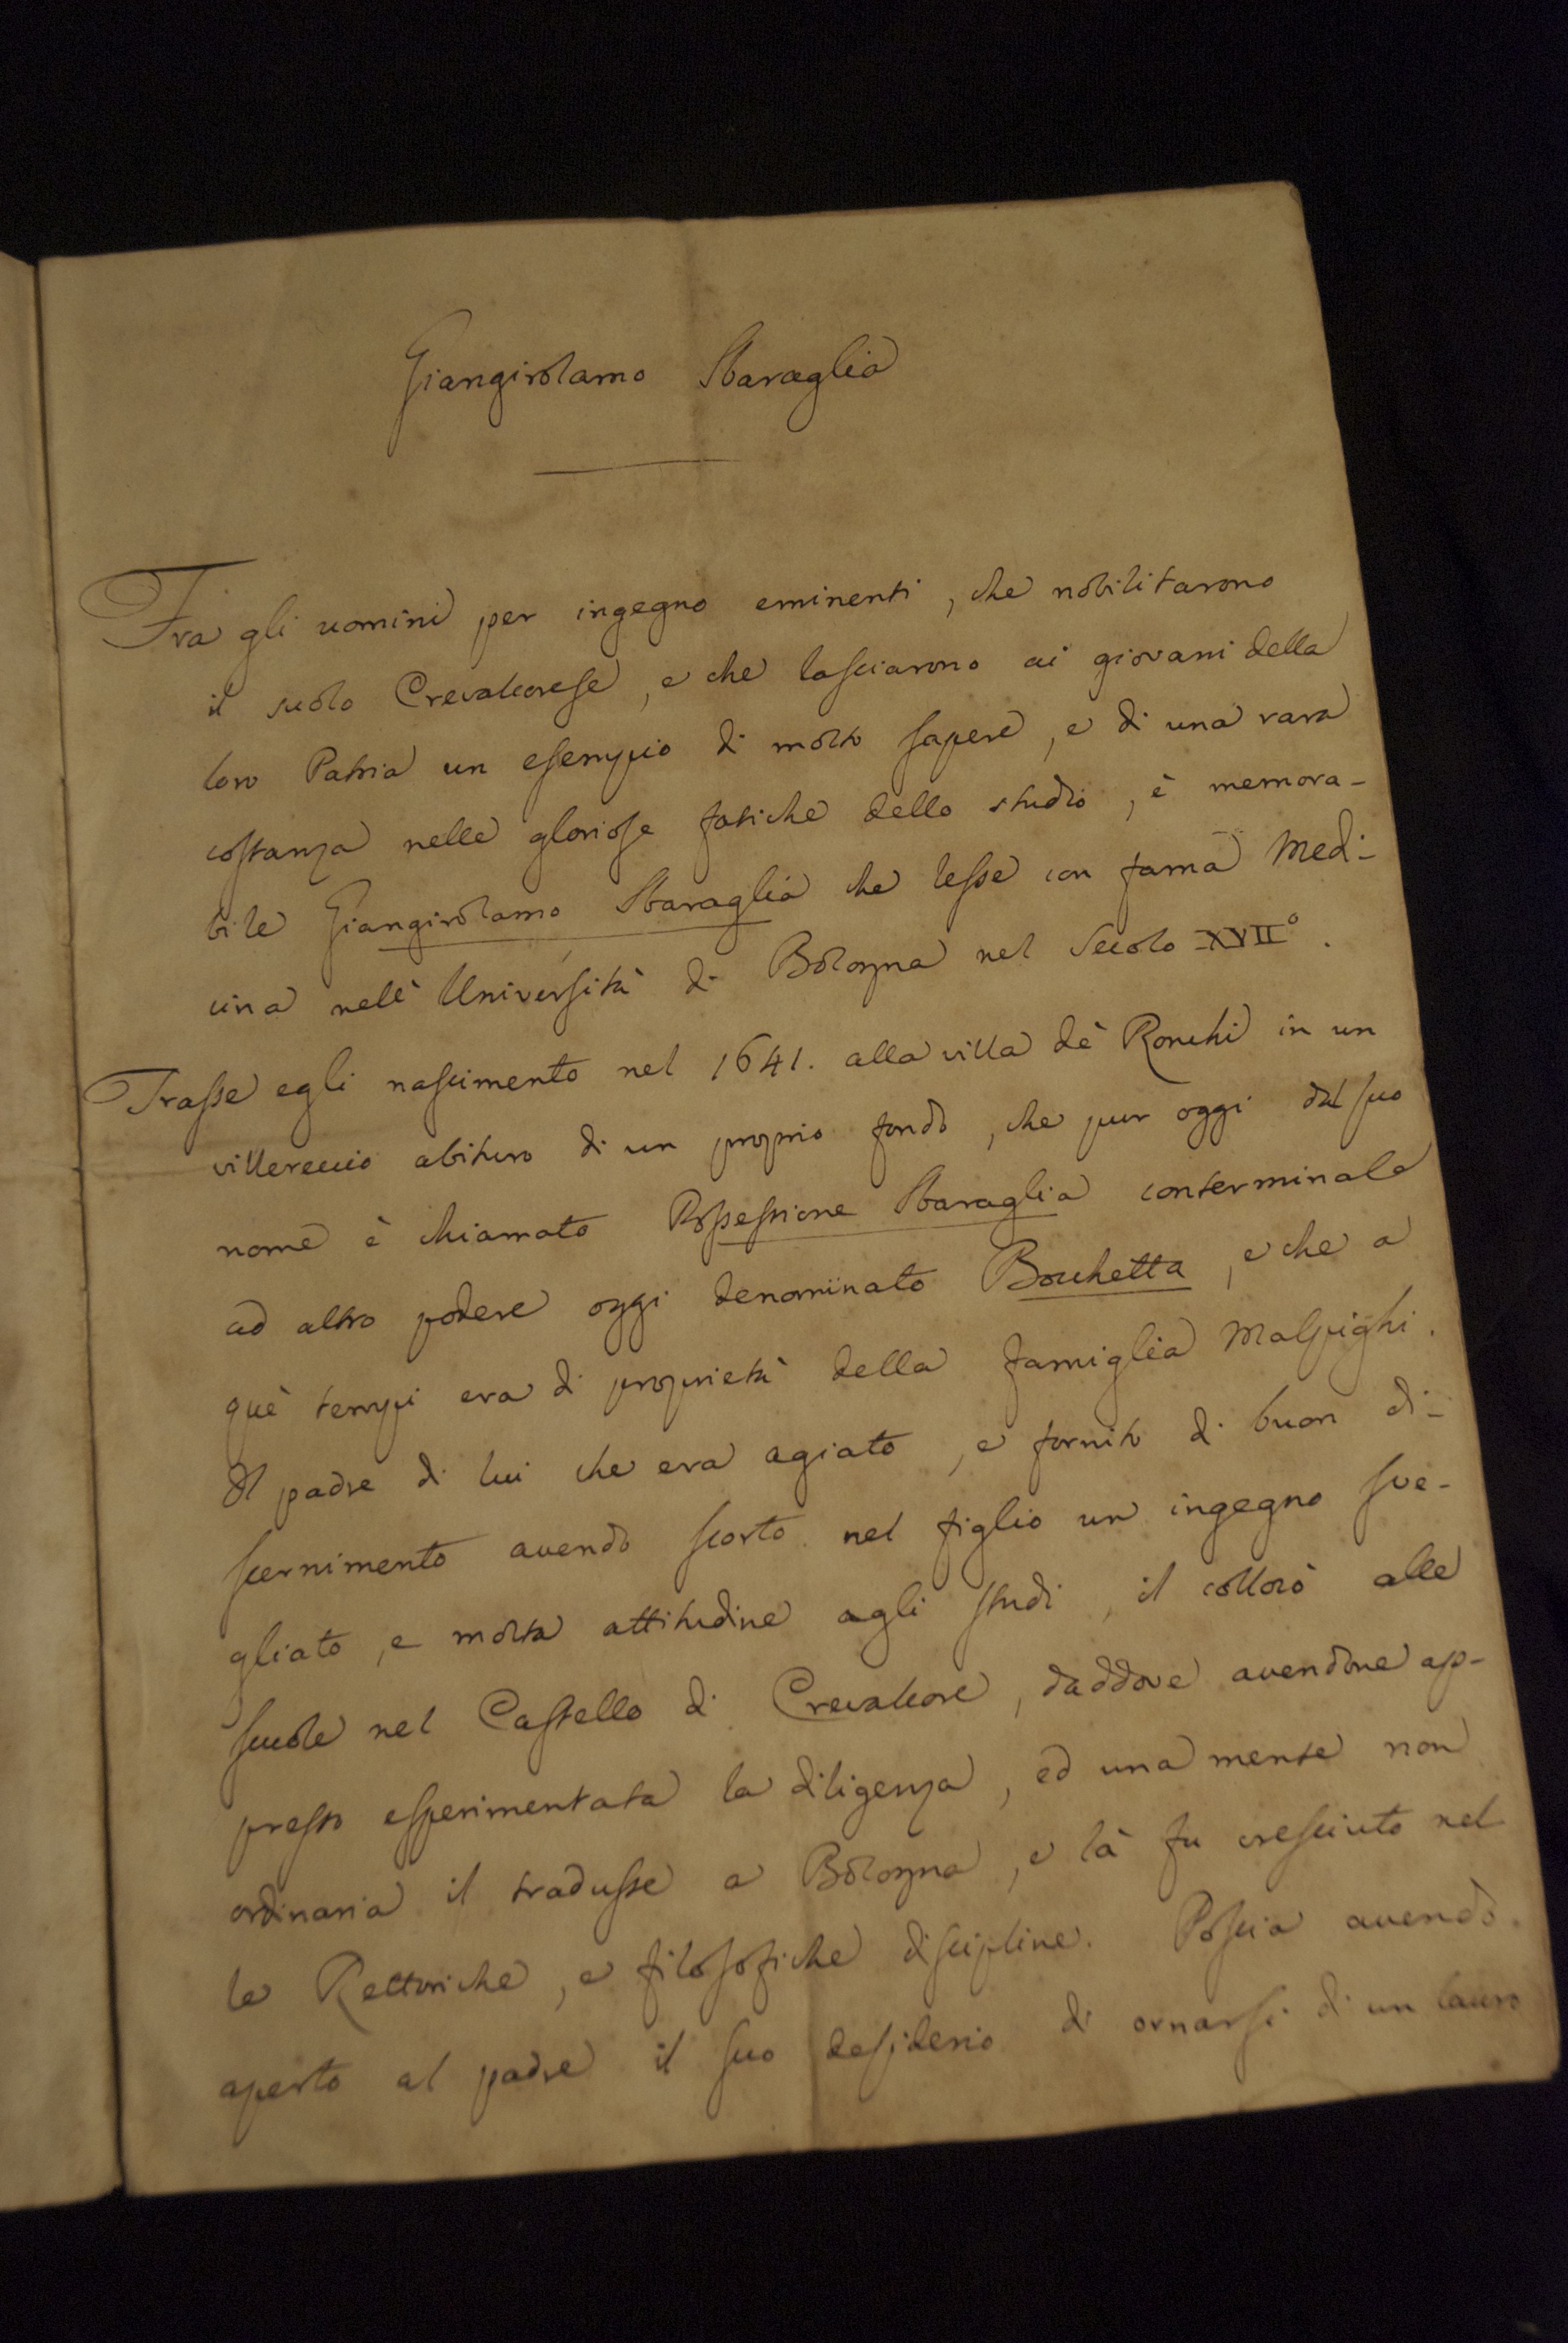 Giangirolamo Sbaraglia
Fra gli uomini per ingegno eminenti, che nobilitarono
il suolo Crevalcorese, e che lasciarono ai giovani della
loro Patria un esempio di molto sapere, e di una rara
costanza nelle gloriose fatiche dello studio, è memora-
bile Giangirolamo Sbaraglia che lesse con fama Medi-
cina nell' Università di Bologna nel Secolo XVII°.
Trasse egli nascimento nel 1641. alla villa de' Ronchi in un
villereccio abituro di un proprio fondo, che pur oggi dal suo
nome è chiamato Possessione Sbaraglia conterminale
ad altro podere oggi denominato Bocchetta, e che a
que' tempi era di proprietà della famiglia Malpighi.
Il padre di lui che era agiato, e fornito di buon di-
scernimento avendo scorto nel figlio un ingegno sve-
gliato, e molta attitudine agli studi, il collocò alle
scuole nel Castello di Crevalcore, daddove avendone ap-
presso esperimentata la diligenza, ed una mente non
ordinaria il tradusse a Bologna, e là fu cresciuto nel
le Rettoriche, e filosofiche discipline. Poscia avendo
aperto al padre il suo desiderio di ornarsi di un lauro